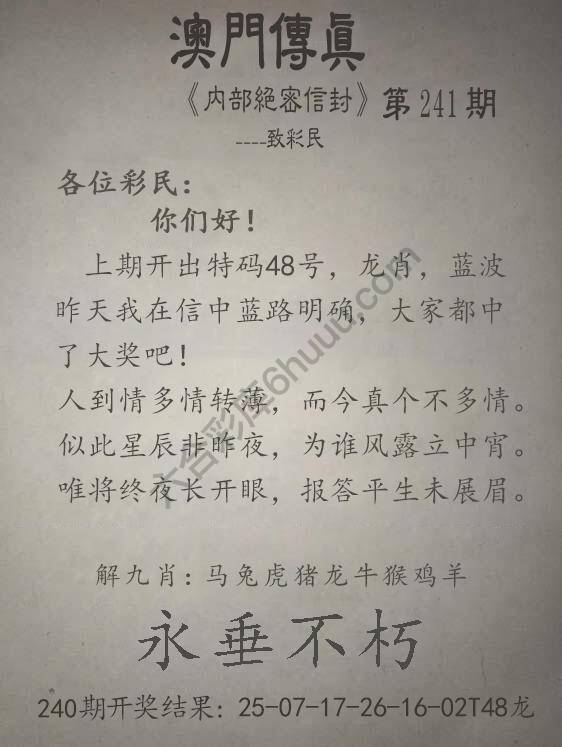 澳門傳眞
《内部絕密信封》第241期
----致彩民
各位彩民：
你们好！
上期开出特码48号，龙肖，蓝波
昨天我在信中蓝路明确，大家都中
了大奖吧！
人到情多情转薄，而今真个不多情。
似此星辰非昨夜，为谁风露立中宵。
唯将终夜长开眼，报答平生未展眉。
解九肖：马兔虎猪龙牛猴鸡羊
永垂不朽
240期开奖结果：25-07-17-26-16-02T48龙
六合彩库6huuu.com